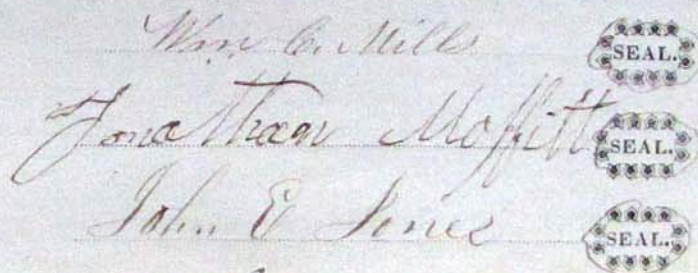 Wm C. Mills SEAL.
Jonathan Moffitt SEAL.
John E Jones SEAL.